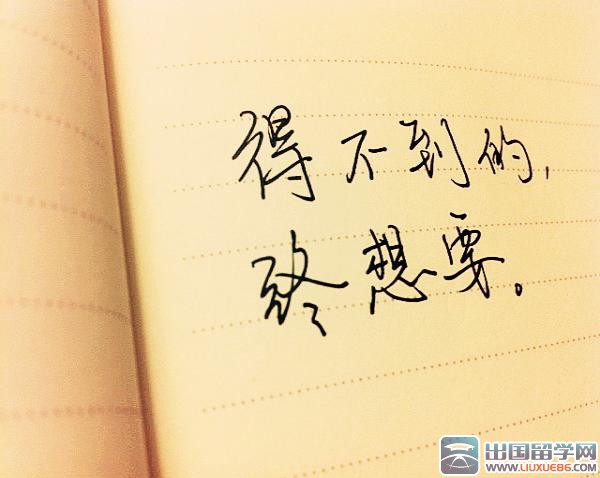 得不到的，
终想要。
出国留学网
WWW.LIUXUE86.COM